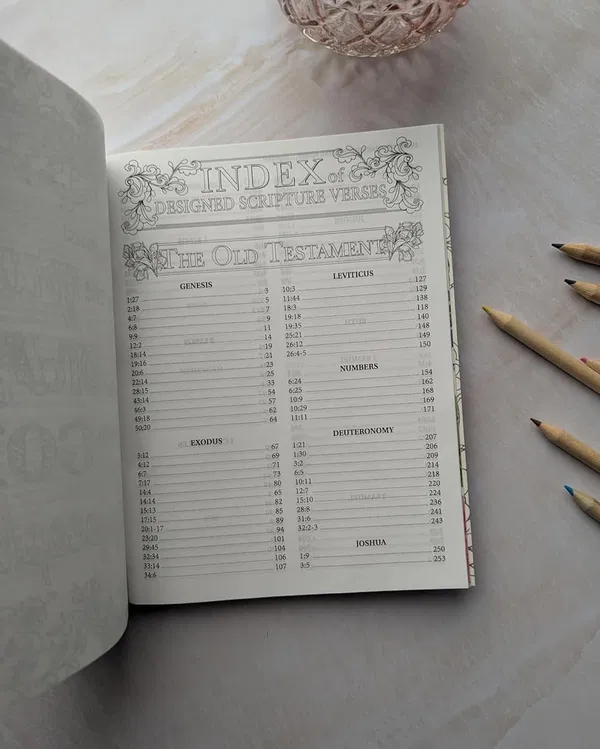 INDEX of
DESIGNED SCRIPTURE VERSES
THE OLD TESTAMENT
GENESIS
1:27 3
2:18 5
4:7 7
6:8 9
9:9 11
12:2 14
18:14 19
19:16 21
20:6 23
22:14 25
28:15 33
43:14 54
46:3 57
49:18 62
50:20 64
EXODUS
3:12 67
4:12 69
6:7 71
7:17 73
14:4 80
14:14 65
15:13 82
17:15 85
20:1-17 89
23:20 94
29:45 101
32:34 104
33:14 106
34:6 107
LEVITICUS
10:3 127
11:44 129
18:3 138
19:18 118
19:35 140
25:21 148
26:12 149
26:4-5 150
NUMBERS
6:24 154
6:25 162
10:9 168
10:29 169
11:11 171
DEUTERONOMY
1:21 207
1:30 206
3:2 209
6:5 214
10:11 218
12:7 220
15:10 224
28:8 236
31:6 241
32:2-3 243
JOSHUA
1:9 250
3:5 253